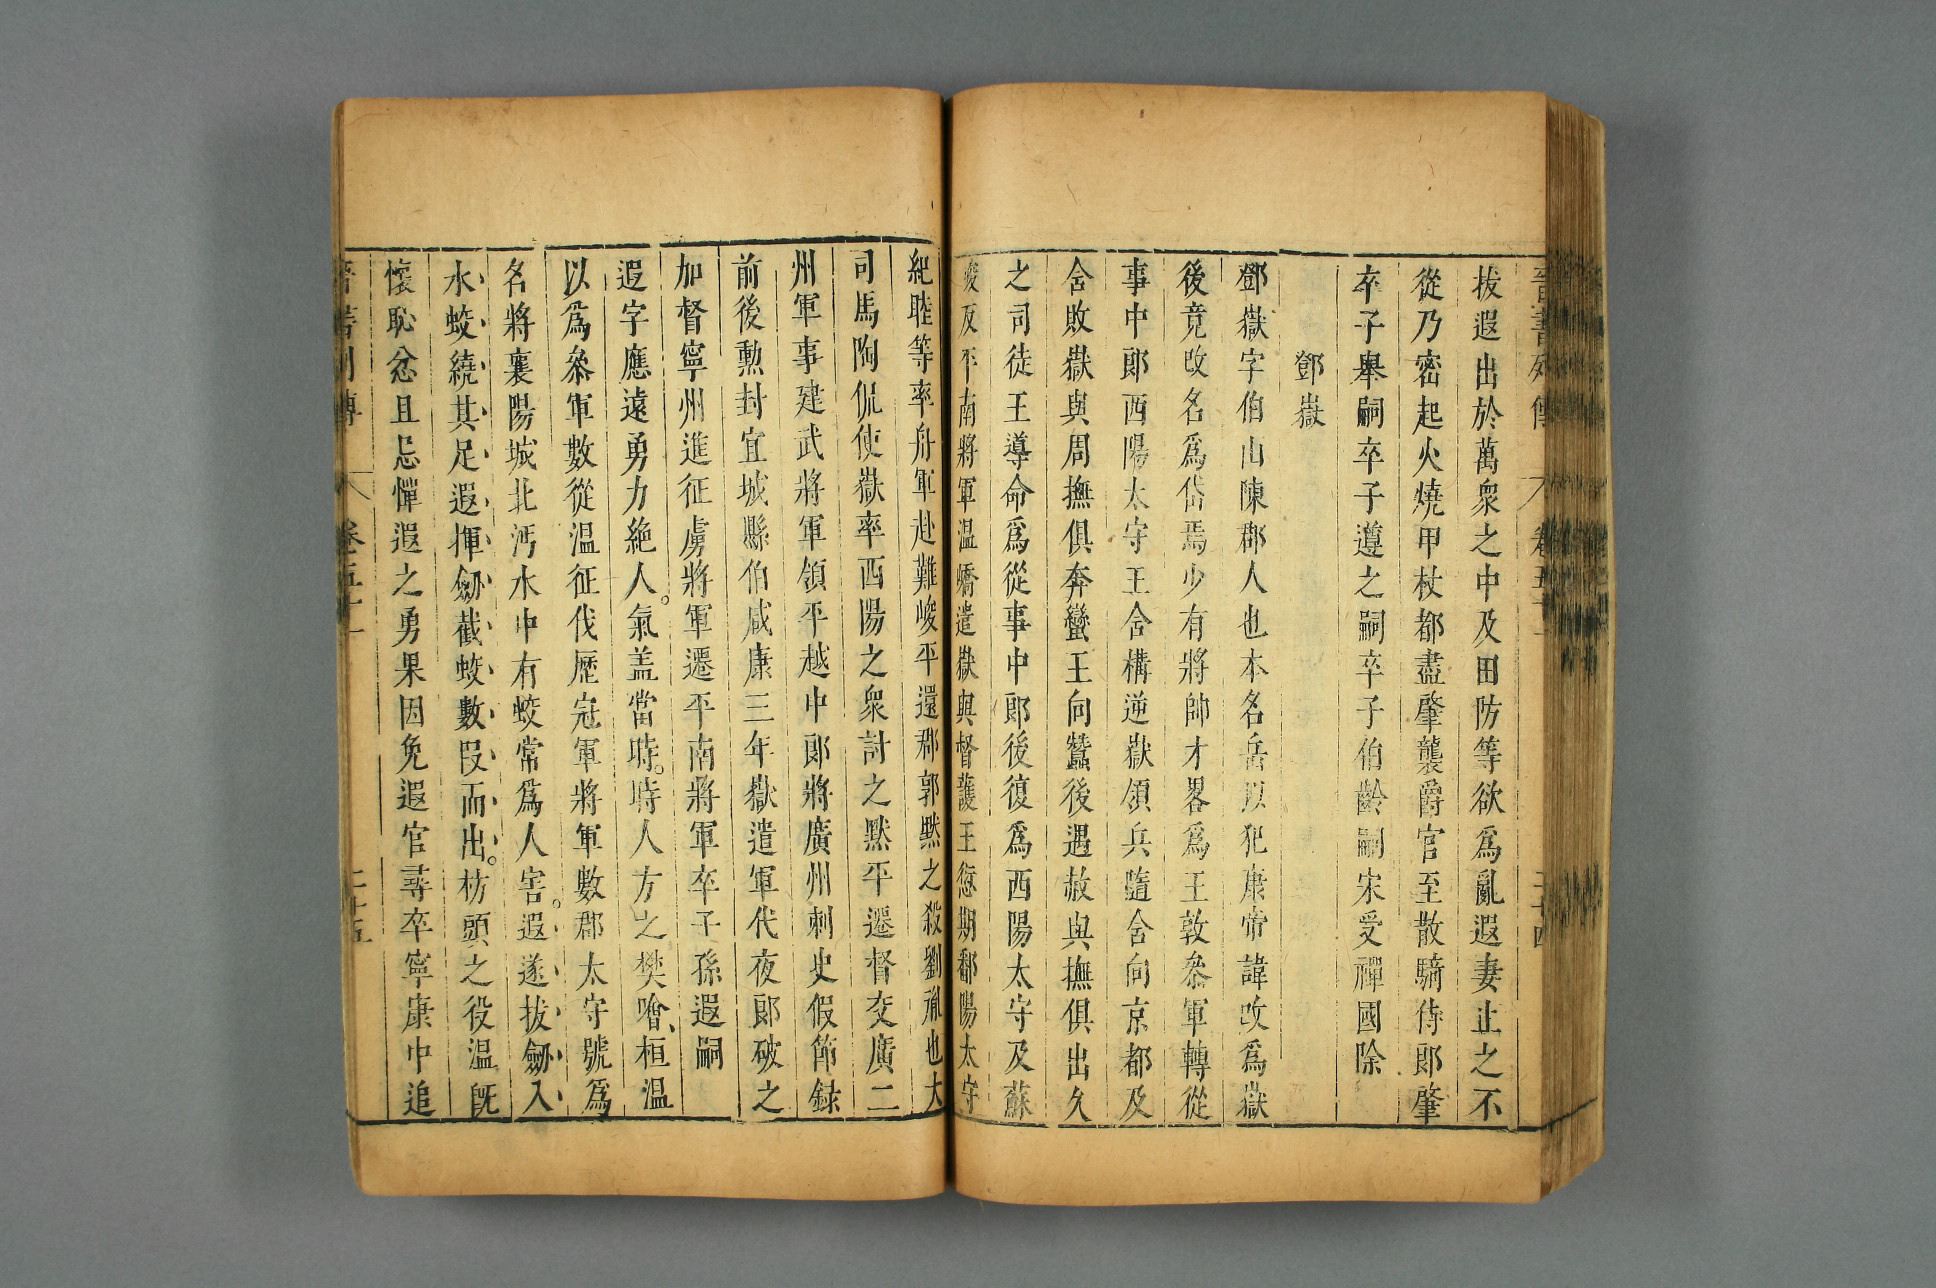 晉書列傳 卷五十一 二十四
拔遐出於萬衆之中及田防等欲爲亂遐妻止之不
從乃密起火燒甲杖都盡肇襲爵官至散騎侍郎肇
卒子舉嗣卒子遵之嗣卒子伯齡嗣宋受禪國除
鄧嶽
鄧嶽字伯山陳郡人也本名岳以犯康帝諱改爲嶽
後竟改名爲岱焉少有將帥才畧爲王敦叅軍轉從
事中郎西陽太守王含構逆嶽領兵隨含向京都及
含敗嶽與周撫俱奔蠻王向蠶後遇赦與撫俱出久
之司徒王導命爲從事中郎後復爲西陽太守及蘇
峻反平南將軍温嶠遣嶽與督護王愆期鄱陽太守
紀睦等率舟軍赴難峻平還郡郭默之殺劉胤也大
司馬陶侃使嶽率西陽之衆討之默平遷督交廣二
州軍事建武將軍領平越中郎將廣州刺史假節録
前後勲封宜城縣伯咸康三年嶽遣軍代夜郎破之
加督寧州進征虜將軍遷平南將軍卒子孫遐嗣
遐字應遠勇力絶人。氣盖當時。時人方之樊噲、桓温
以爲叅軍數從温征伐歷冠軍將軍數郡太守號爲
名將襄陽城北沔水中有蛟常爲人害。遐遂拔劒入
水蛟繞其足遐揮劒截蛟數段而出。枋頭之役温旣
懷恥忿且忌憚遐之勇果因免遐官尋卒寧康中追
晉書列傳 卷五十一 二十五